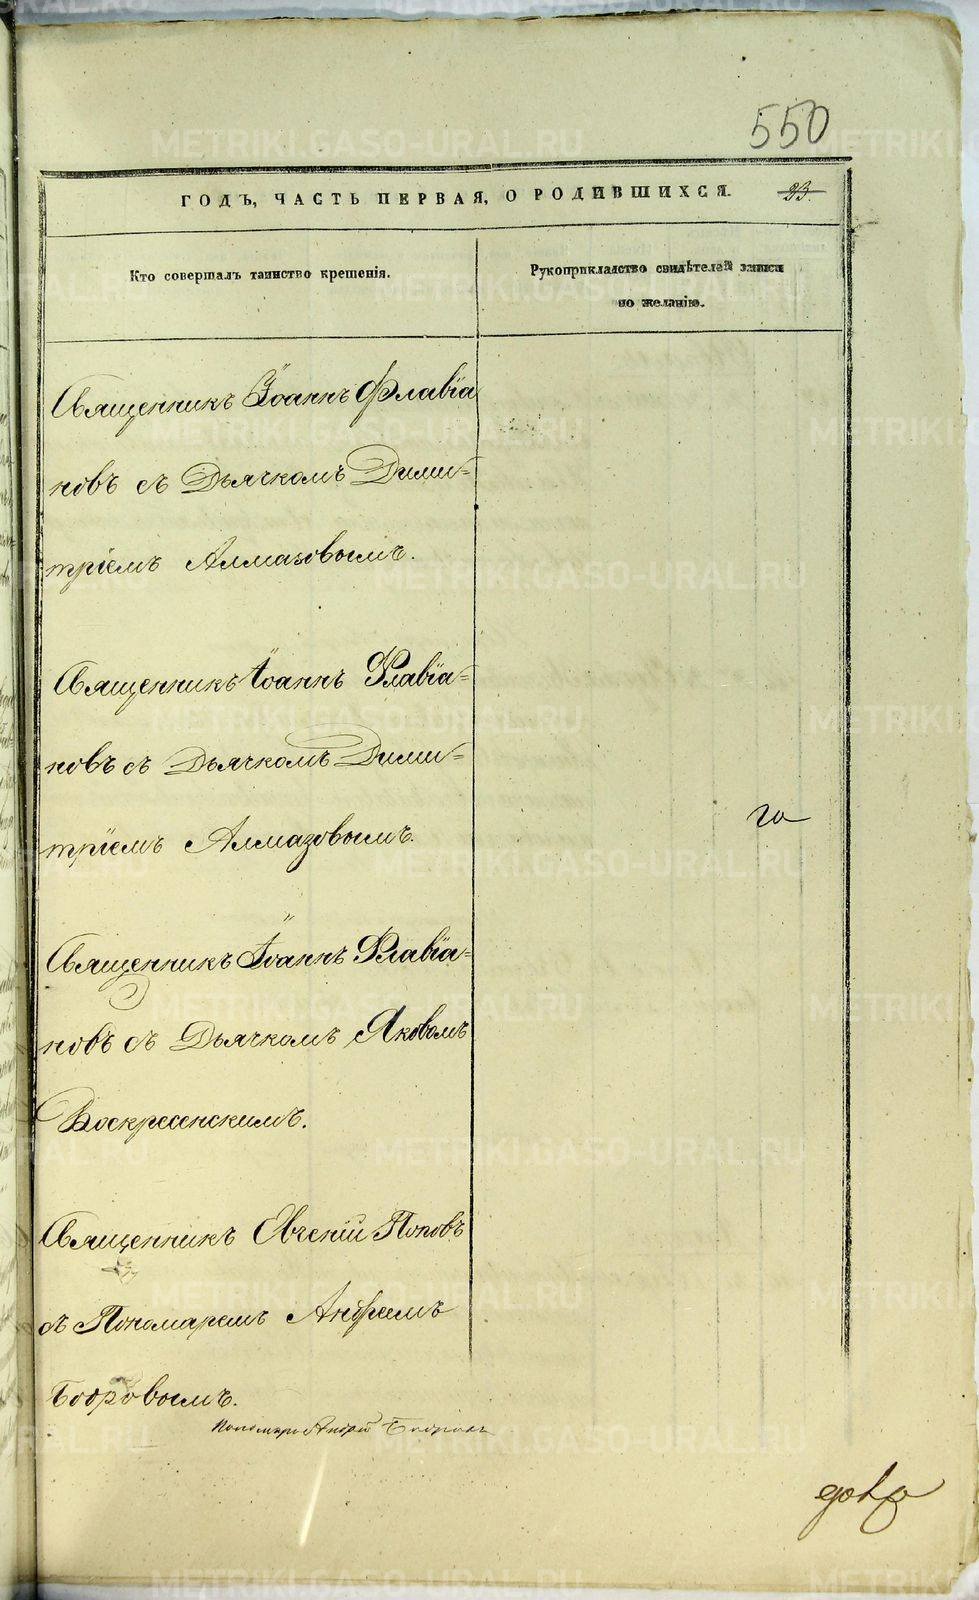 550
ГОДЪ, ЧАСТЬ ПЕРВАЯ, О РОДИВШИХСЯ.
23.
Кто совершалъ таинство крещенія.
Рукоприкладство свидѣтелей записи
по желанію.
Священникъ Іоаннъ Флавіа
новъ съ Дьячкомъ Дими=
тріемъ Алмазовымъ.
Священникъ Іоаннъ Флавіа=
новъ съ Дьячкомъ Дими=
тріемъ Алмазовымъ.
го
Священникъ Іоаннъ Флавіа=
новъ съ Дьячкомъ Яковомъ
Воскресенскимъ.
Священникъ Евгеній Поповъ
съ Пономаремъ Андреемъ
Бобровымъ.
Пономарь Андрей Бобровъ
METRIKI.GASO-URAL.RU